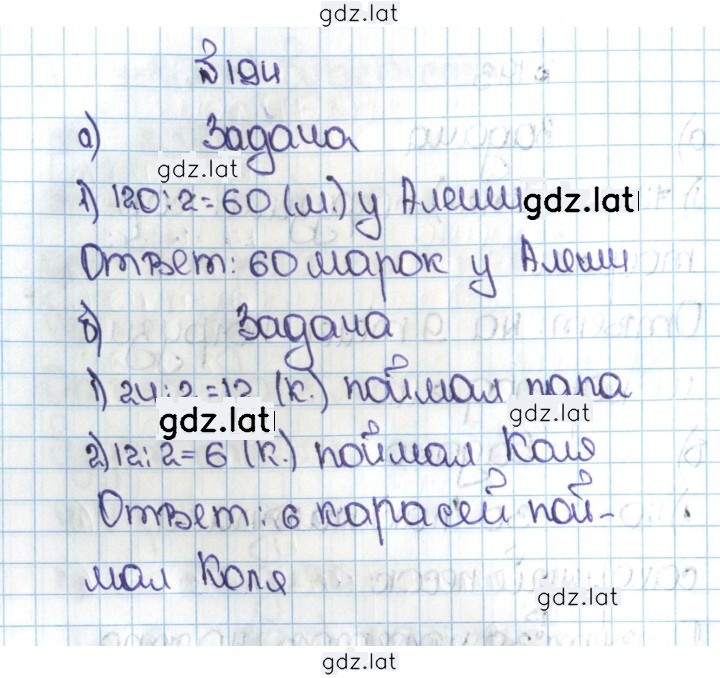 gdz.lat
№194
а) Задача
gdz.lat
1) 120:2=60 (м.) у Алеши
gdz.lat
Ответ: 60 марок у Алеши
б) Задача
1) 24:2=12 (к.) поймал папа
gdz.lat
gdz.lat
2) 12:2=6 (к.) поймал Коля
Ответ: 6 карасей пой-
мал Коля
gdz.lat
gdz.lat